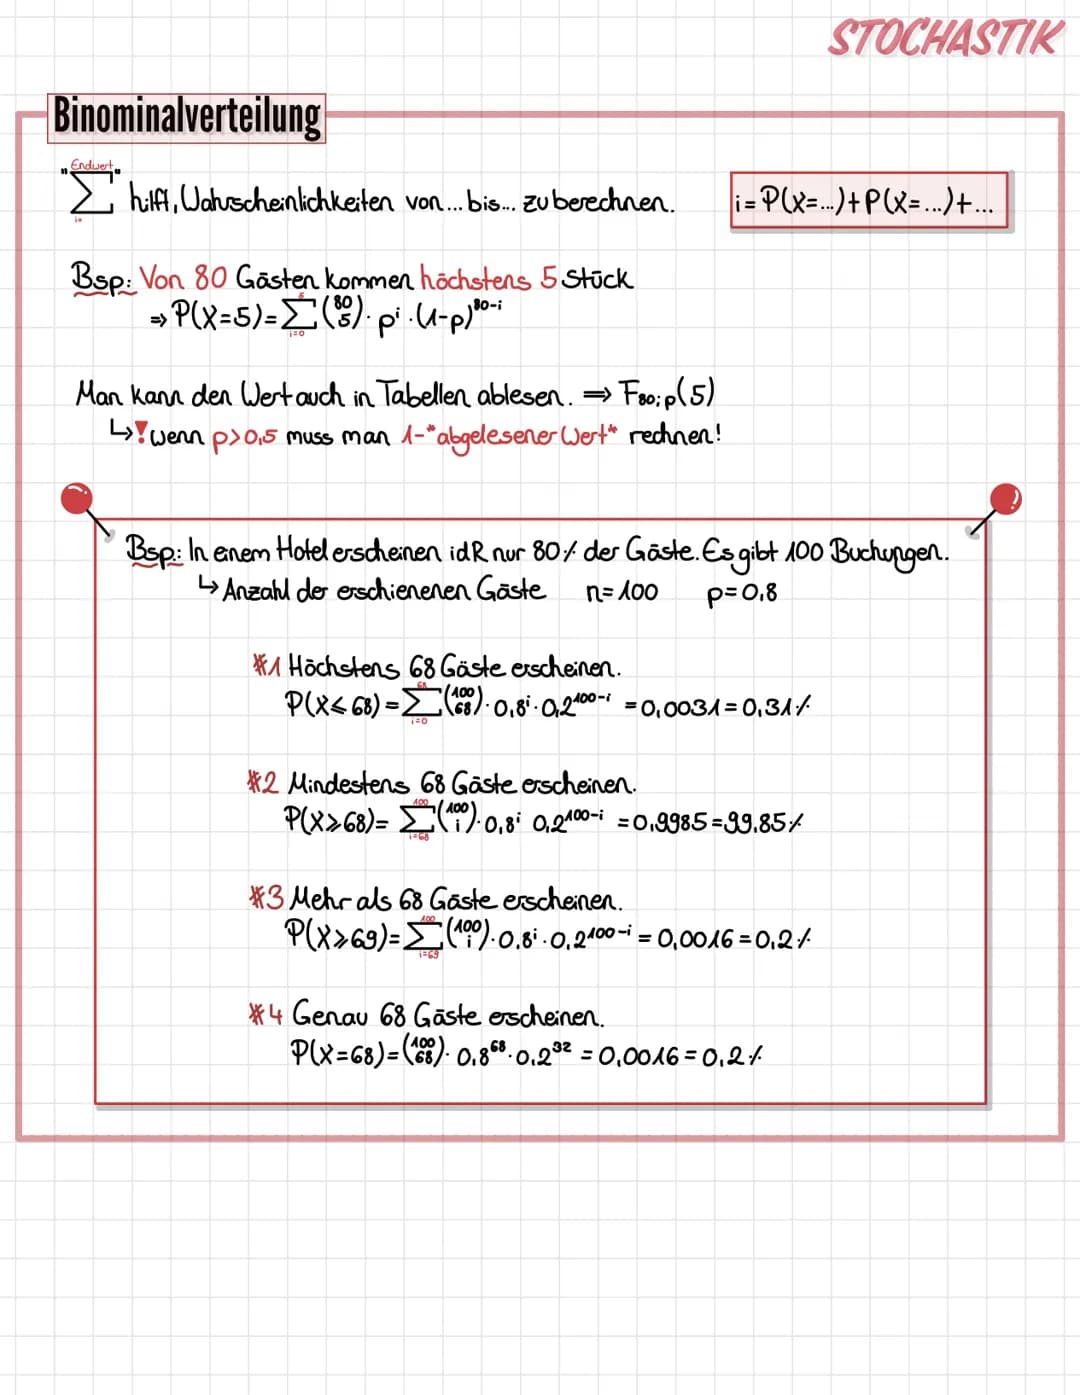 STOCHASTIK
Binominalverteilung
"Endwert"
∑ hilft, Wahrscheinlichkeiten von... bis... zu berechnen.
i=
i = P(X=...)+P(X=...)+...
Bsp.: Von 80 Gästen kommen höchstens 5 Stück
⇒ P(X=5)= ∑_{i=0}^{5} (80 5) · p^i · (1-p)^{80-i}
Man kann den Wert auch in Tabellen ablesen. ⇒ F_{80;p}(5)
↳ ! wenn p>0,5 muss man 1-"abgelesener Wert" rechnen!
Bsp.: In einem Hotel erscheinen idR nur 80% der Gäste. Es gibt 100 Buchungen.
↳ Anzahl der erschienenen Gäste n=100 p=0,8
#1 Höchstens 68 Gäste erscheinen.
P(X≤68) = ∑_{i=0}^{68} (100 68) · 0,8^i · 0,2^{100-i} = 0,0031 = 0,31%
#2 Mindestens 68 Gäste erscheinen.
P(X≥68) = ∑_{i=68}^{100} (100 i) · 0,8^i 0,2^{100-i} = 0,9985 = 99,85%
#3 Mehr als 68 Gäste erscheinen.
P(X≥69) = ∑_{i=69}^{100} (100 i) · 0,8^i · 0,2^{100-i} = 0,0016 = 0,2%
#4 Genau 68 Gäste erscheinen.
P(X=68) = (100 68) · 0,8^{68} · 0,2^{32} = 0,0016 = 0,2%